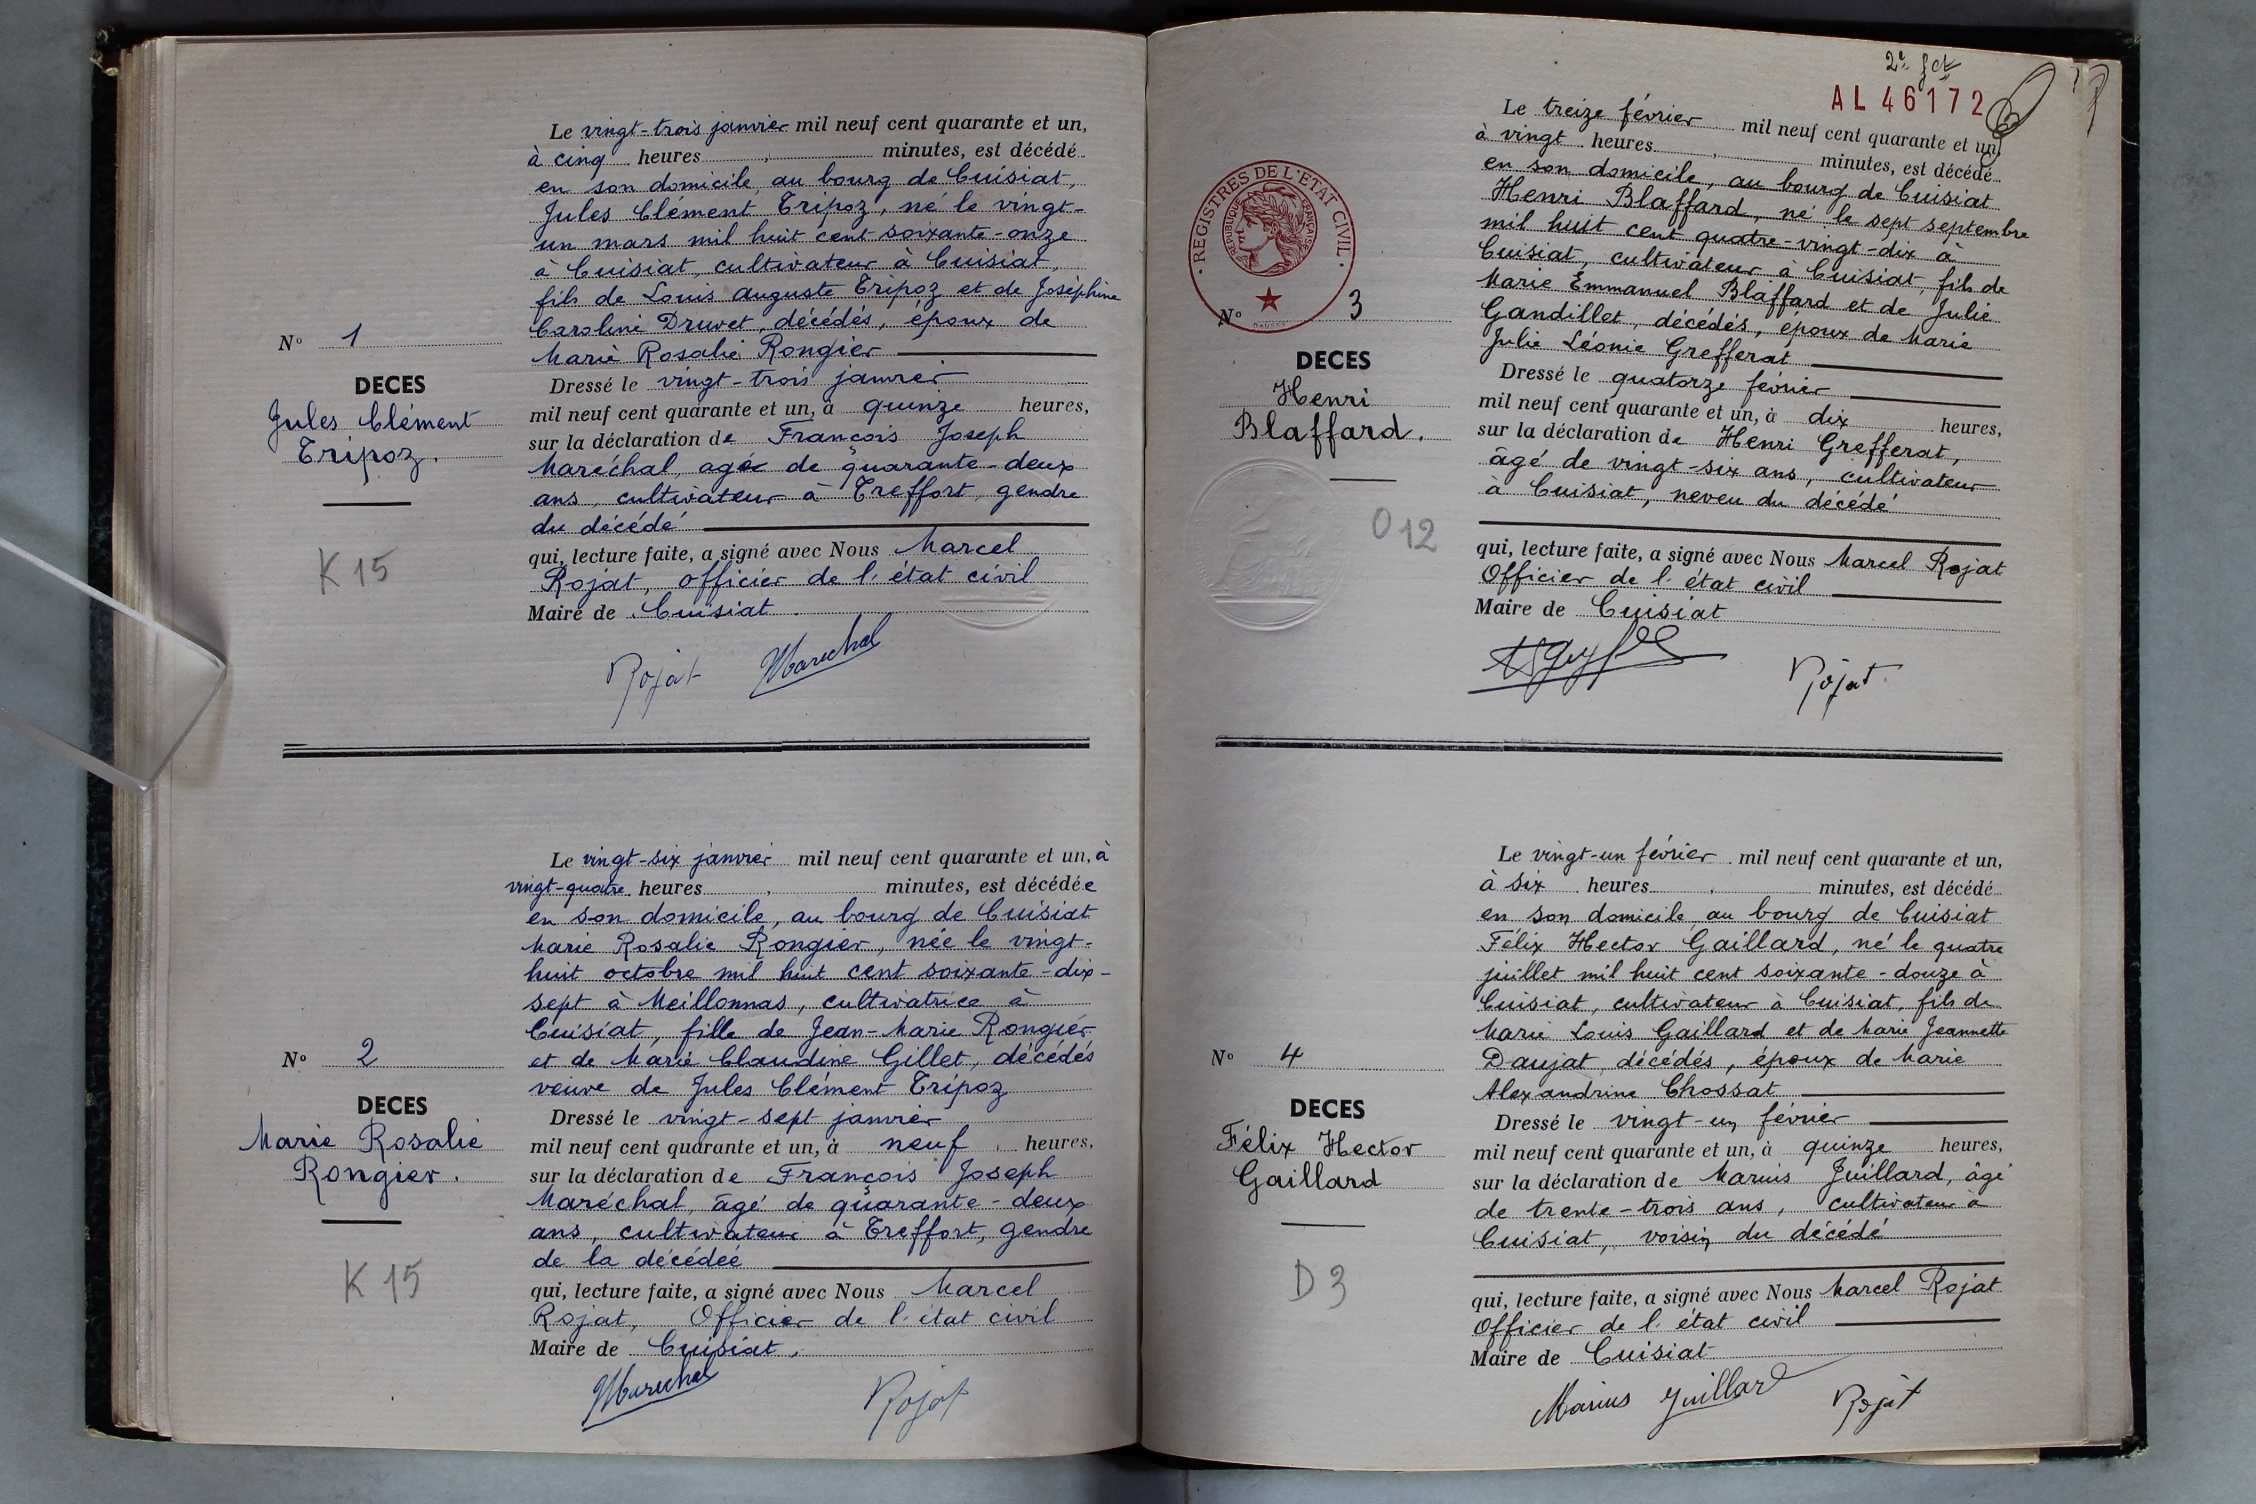 Le vingt-trois janvier mil neuf cent quarante et un,
à cinq heures , minutes, est décédé
en son domicile, au bourg de Cuisiat,
Jules Clément Tripoz, né le vingt-
un mars mil huit cent soixante-onze
à Cuisiat, cultivateur à Cuisiat,
fils de Louis Auguste Tripoz et de Joséphine
Caroline Druvet, décédés, époux de
Marie Rosalie Rongier
Dressé le vingt-trois janvier
mil neuf cent quarante et un, à quinze heures,
sur la déclaration de François Joseph
Maréchal, agé de quarante-deux
ans, cultivateur à Treffort, gendre
du décédé
qui, lecture faite, a signé avec Nous Marcel
Rojat, officier de l'état civil
Maire de Cuisiat.
Rojat Marechal
N° 1
DECES
Jules Clément
Tripoz.
K 15
Le vingt-six janvier mil neuf cent quarante et un, à
vingt-quatre heures , minutes, est décédée
en son domicile, au bourg de Cuisiat
Marie Rosalie Rongier, née le vingt-
huit octobre mil huit cent soixante-dix-
sept à Meillonnas, cultivatrice à
Cuisiat, fille de Jean-Marie Rongier
et de Marie Claudine Gillet, décédés
veuve de Jules Clément Tripoz
Dressé le vingt-sept janvier
mil neuf cent quarante et un, à neuf heures,
sur la déclaration de François Joseph
Maréchal, âgé de quarante-deux
ans, cultivateur à Treffort, gendre
de la décédée
qui, lecture faite, a signé avec Nous Marcel
Rojat, Officier de l'état civil
Maire de Cuisiat.
Marechal Rojat
N° 2
DECES
Marie Rosalie
Rongier.
K 15
AL 46172
REGISTRES DE L'ETAT CIVIL
REPUBLIQUE FRANÇAISE
Le treize février mil neuf cent quarante et un,
à vingt heures , minutes, est décédé
en son domicile, au bourg de Cuisiat
Henri Blaffard, né le sept septembre
mil huit cent quatre-vingt-dix à
Cuisiat, cultivateur à Cuisiat, fils de
Marie Emmanuel Blaffard et de Julie
Gandillet, décédés, époux de Marie
Julie Léonie Grefferat
Dressé le quatorze février
mil neuf cent quarante et un, à dix heures,
sur la déclaration de Henri Grefferat,
âgé de vingt-six ans, cultivateur
à Cuisiat, neveu du décédé
qui, lecture faite, a signé avec Nous Marcel Rojat
Officier de l'état civil
Maire de Cuisiat
Rojat.
N° 3
DECES
Henri
Blaffard.
O 12
Le vingt-un février mil neuf cent quarante et un,
à six heures , minutes, est décédé
en son domicile au bourg de Cuisiat
Félix Hector Gaillard, né le quatre
juillet mil huit cent soixante-douze à
Cuisiat, cultivateur à Cuisiat, fils de
Marie Louis Gaillard et de Marie Jeannette
Daujat, décédés, époux de Marie
Alexandrine Chossat
Dressé le vingt-un février
mil neuf cent quarante et un, à quinze heures,
sur la déclaration de Marius Juillard, âgé
de trente-trois ans, cultivateur à
Cuisiat, voisin du décédé
qui, lecture faite, a signé avec Nous Marcel Rojat
Officier de l'état civil
Maire de Cuisiat
Marius Juillard Rojat
N° 4
DECES
Félix Hector
Gaillard
D 3